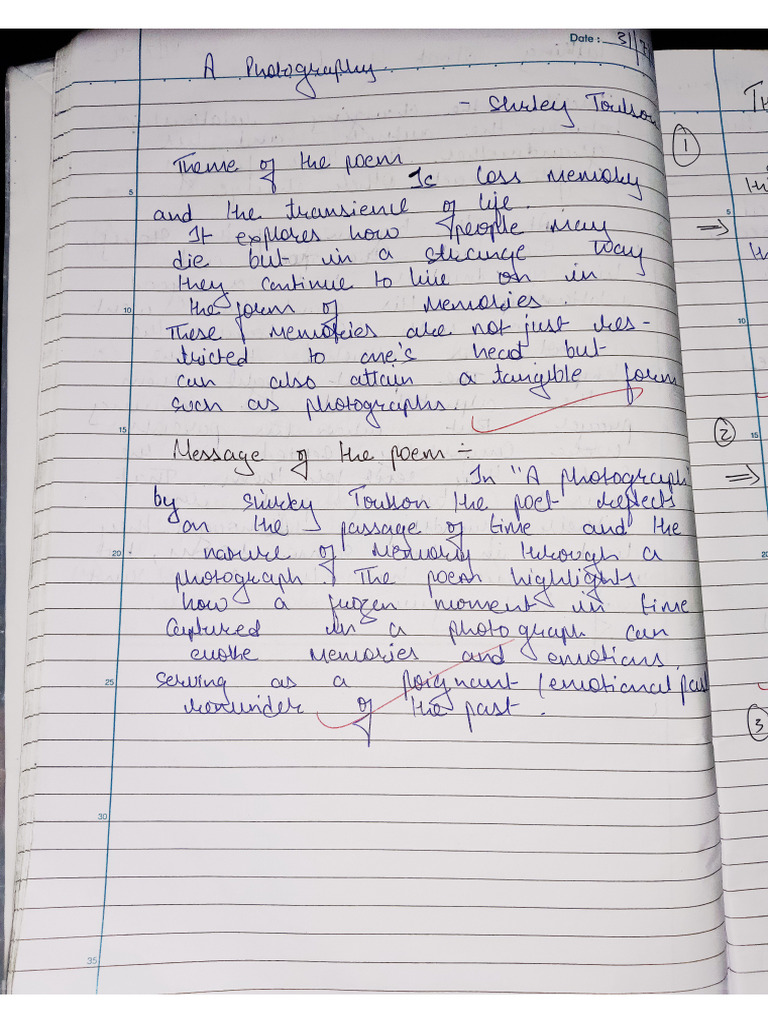 Date : 31/7
A Photography
- Shirley Toulson
Theme of the poem
Is Loss Memory
and the transience of life.
It explores how people may
die but in a strange way
they continue to live on in
the form of memories.
These memories are not just res-
tricted to one's head but
can also attain a tangible form
such as photographs.
Message of the poem ÷
In "A photograph"
by Shirley Toulson the poet reflects
on the passage of time and the
nature of memory through a
photograph. The poem highlights
how a frozen moment in time
captured in a photograph can
evoke memories and emotions,
serving as a poignant (emotional past
reminder of the past.
5
10
15
20
25
30
35
1
Th
5
⇒
10
2
15
⇒
20
3